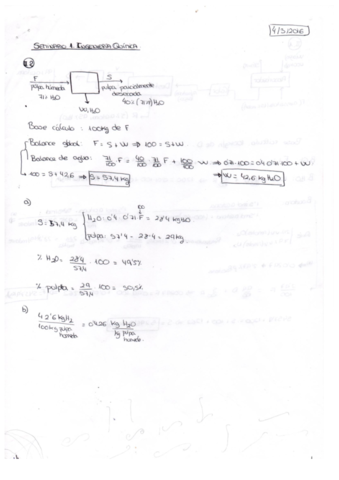 4/3/2016
SEMINARIO 1. INGENIERÍA QUÍMICA
F
pulpa húmeda
71% H2O
S
pulpa parcialmente
desecada
W, H2O
Base cálculo: 100 kg de F
Balance global: F = S + W → 100 = S + W
Balance de agua: 71/100 · F = 40/100 · 71/100 · F + 100/100 · W → 0'71·100 = 0'4·0'71·100 + W
100 = S + 42,6 → S = 57,4 kg
W = 42,6 kg H2O
a)
S: 57,4 kg { H2O: 0'4 · 0'71 · F = 28,4 kg H2O
pulpa: 57'4 - 28'4 = 29 kg
% H2O = 28,4/57,4 · 100 = 49'5%
% pulpa = 29/57,4 · 100 = 50,5%
b)
42'6 kg H2/100 kg pulpa húmeda = 0'426 kg H2O/kg pulpa húmeda